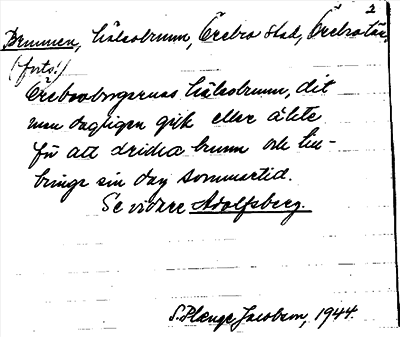 2
Brunnen, hälsobrunn, Örebro stad, Örebro län,
(forts.)
Örebroborgarnas hälsobrunn, dit
man dagligen gick eller åkte
för att dricka brunn och till-
bringa sin dag sommartid.
Se vidare Adolfsberg.
S. Plænge Jacobson, 1944.